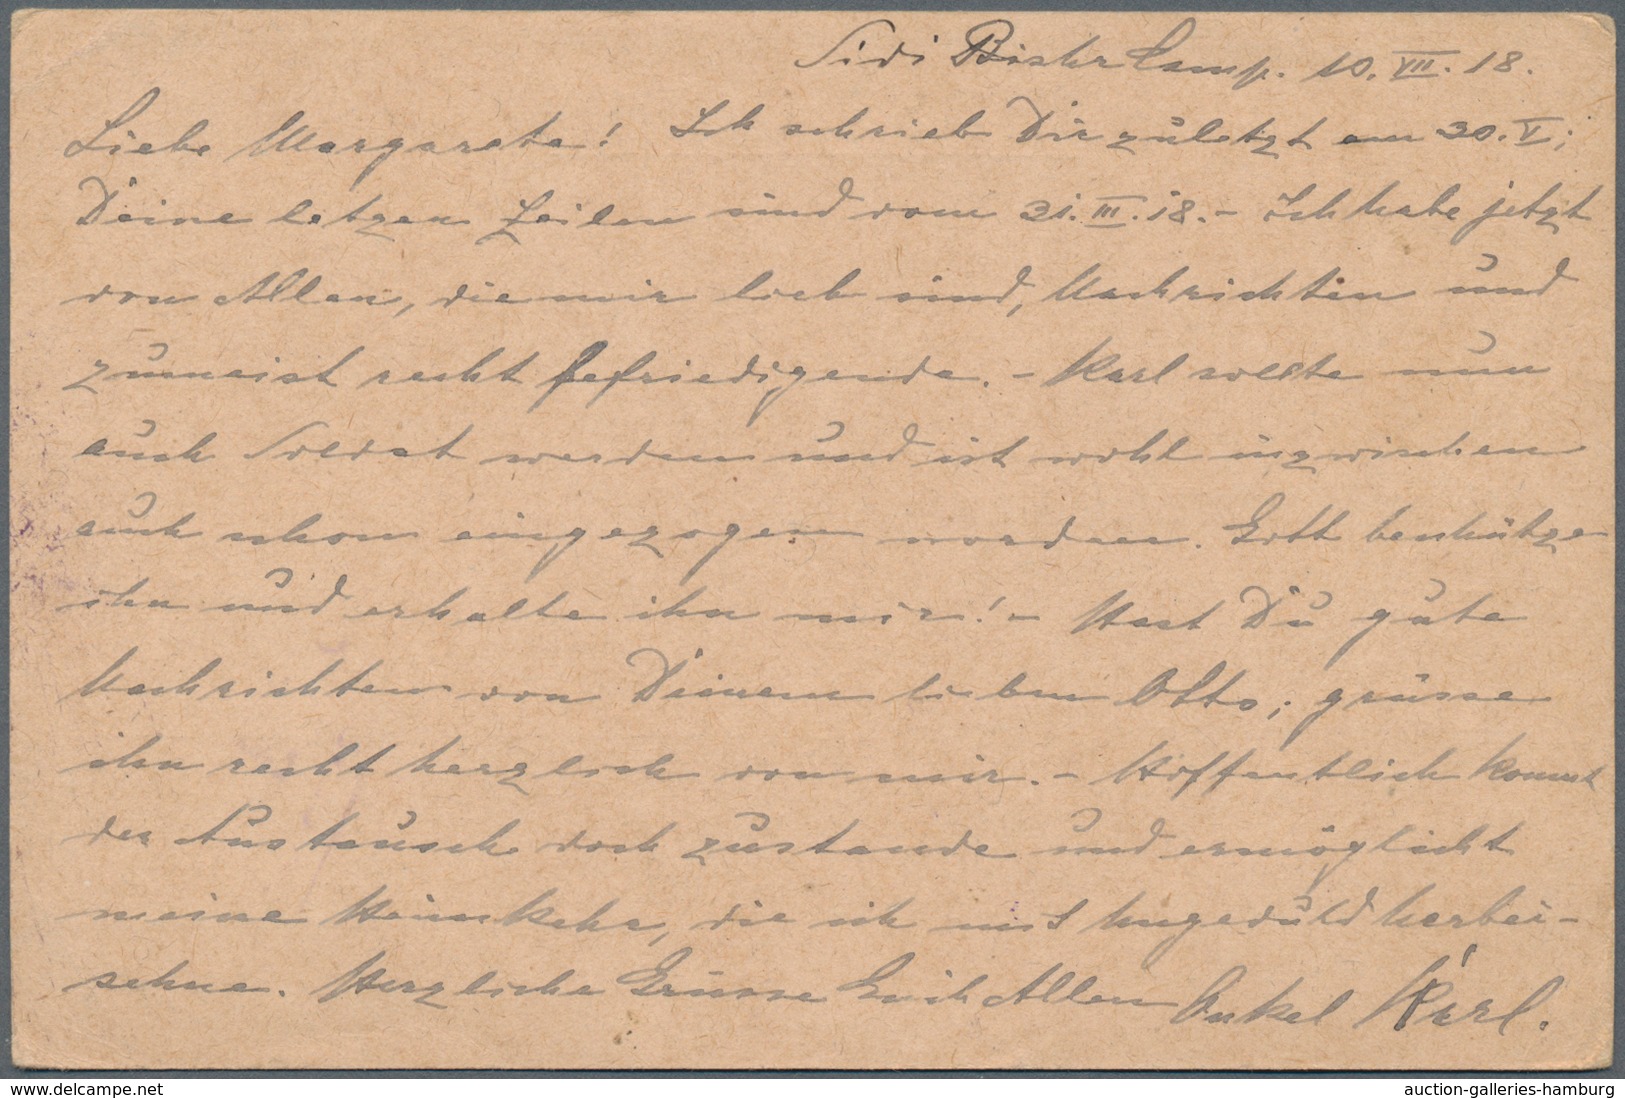 Sidi Bishr Camp. 10. VII. 18.
Liebe Margarete! Ich schrieb Dir zuletzt am 30. V.;
Deine letzen Zeilen sind vom 31. III. 18. – Ich habe jetzt
von Allen, die mir lieb sind, Nachrichten und
zumeist recht befriedigende. – Karl sollte nun
auch Soldat werden und ist wohl inzwischen
auch schon eingezogen worden. Gott beschütze
ihn und erhalte ihn mir! – Hast Du gute
Nachrichten von Deinem lieben Otto; grüsse
ihn recht herzlich von mir. – Hoffentlich kommt
der Austausch doch zustande und ermöglicht
meine Heimkehr, die ich mit Ungeduld herbei-
sehne. Herzliche Grüsse Euch Allen Onkel Karl.
www.delcampe.net
auction-galleries-hamburg